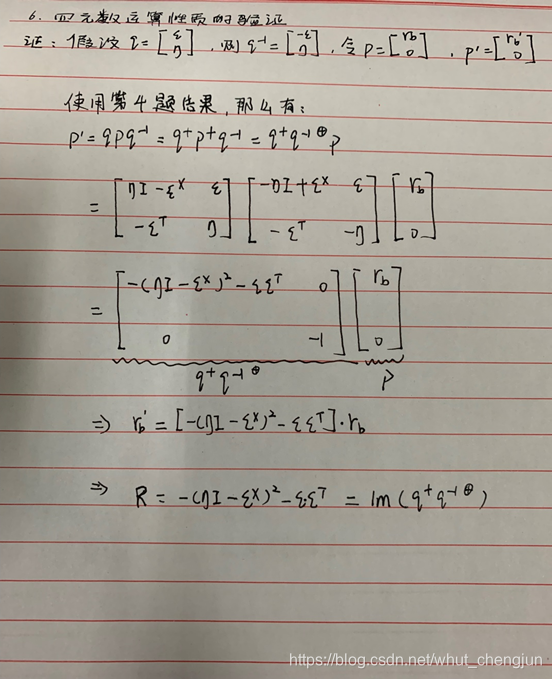 6. 四元数运算性质的验证
证：假设 q = [ε η], 则 q⁻¹ = [-ε η], 令 p = [r_b 0], p' = [r_b' 0]
使用第4题结果, 那么有:
p' = qpq⁻¹ = q⁺p⁺q⁻¹ = q⁺q⁻¹^⊕ p
= [ηI - ε^× ε; -ε^T η] [-ηI + ε^× ε; -ε^T -η] [r_b; 0]
= [-(ηI - ε^×)² - εε^T 0; 0 -1] [r_b; 0]
q⁺q⁻¹^⊕ p
⇒ r_b' = [-(ηI - ε^×)² - εε^T]·r_b
⇒ R = -(ηI - ε^×)² - ε·ε^T = Im(q⁺q⁻¹^⊕)
https://blog.csdn.net/whut_chengjun